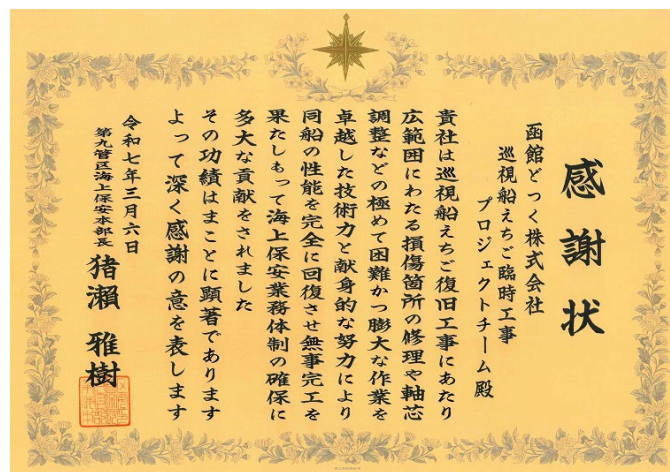 感謝状
函館どつく株式会社
巡視船えちご臨時工事
プロジェクトチーム殿
貴社は巡視船えちご復旧工事にあたり
広範囲にわたる損傷箇所の修理や軸芯
調整などの極めて困難かつ膨大な作業を
卓越した技術力と献身的な努力により
同船の性能を完全に回復させ無事完工を
果たしもって海上保安業務体制の確保に
多大な貢献をされました
その功績はまことに顕著であります
よって深く感謝の意を表します
令和七年三月六日
第九管区海上保安本部長 猪瀬 雅樹